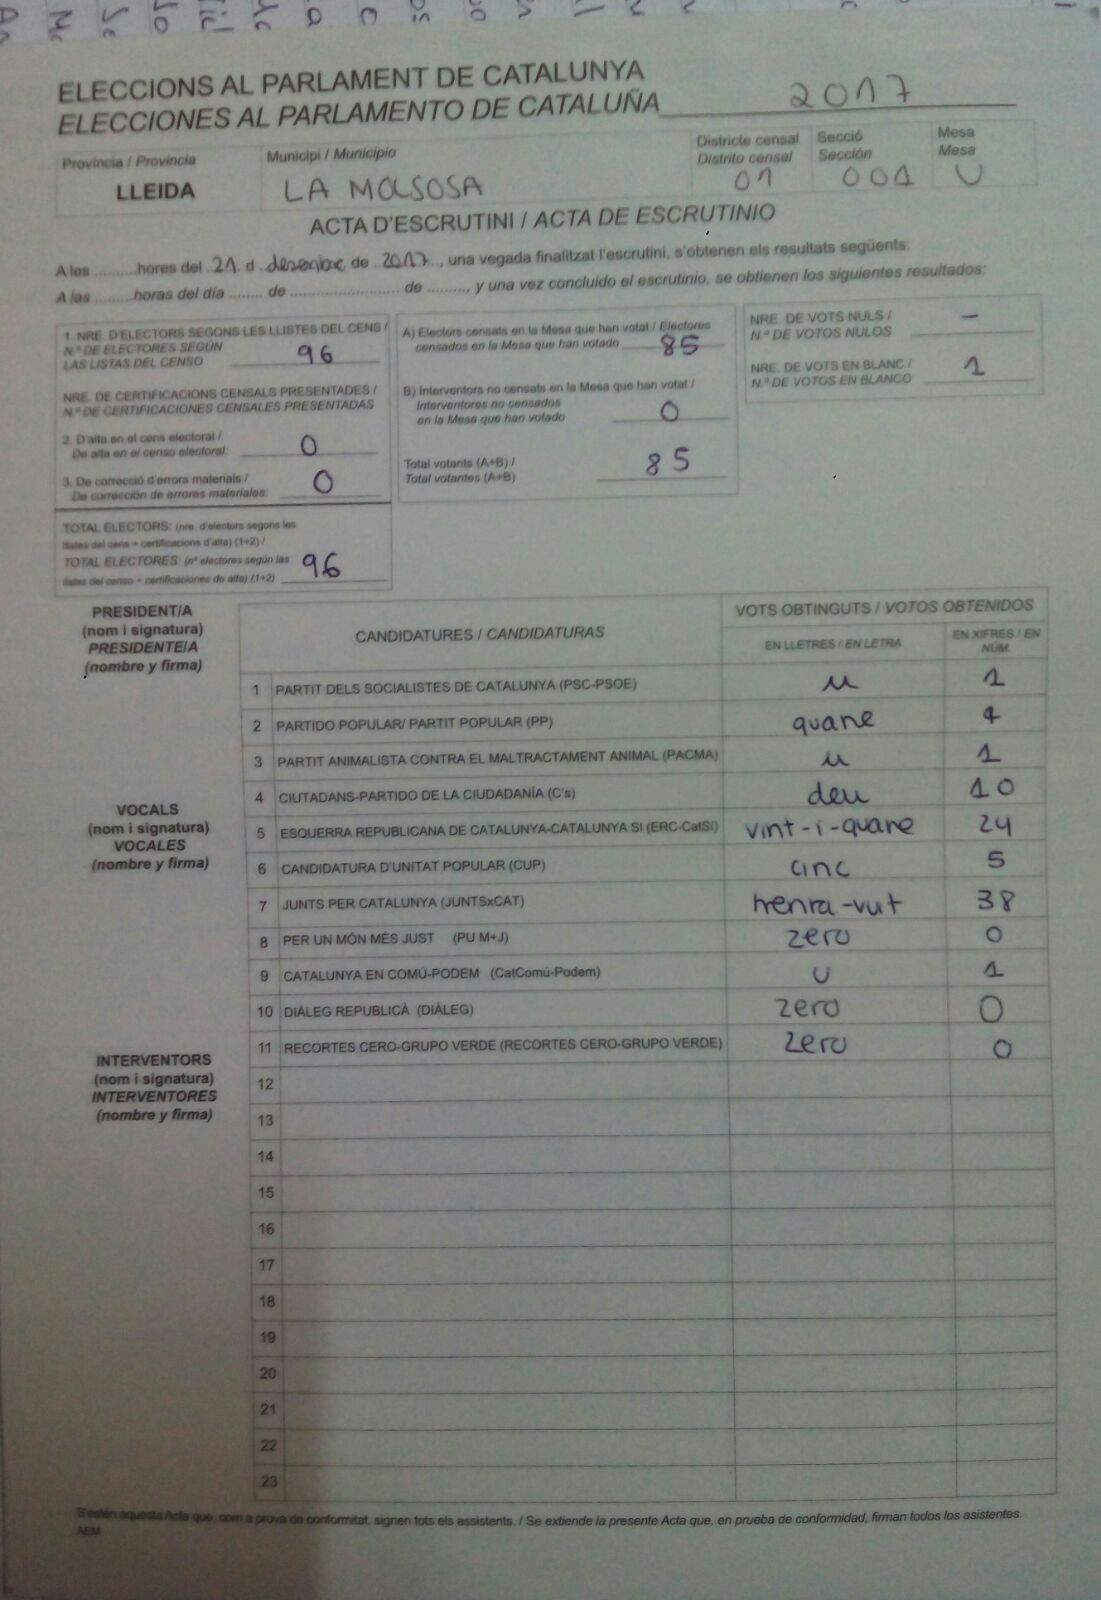 ELECCIONS AL PARLAMENT DE CATALUNYA
ELECCIONES AL PARLAMENTO DE CATALUÑA 2017
Província / Provincia
LLEIDA
Municipi / Municipio
LA MOLSOSA
Districte censal
Distrito censal
01
Secció
Sección
001
Mesa
Mesa
U
ACTA D'ESCRUTINI / ACTA DE ESCRUTINIO
A les .........hores del 21 d desembre de 2017, una vegada finalitzat l'escrutini, s'obtenen els resultats següents:
A las ........horas del día ....... de ........................ de ........, y una vez concluido el escrutinio, se obtienen los siguientes resultados:
1. NRE. D'ELECTORS SEGONS LES LLISTES DEL CENS /
N.º DE ELECTORES SEGÚN
LAS LISTAS DEL CENSO 96
NRE. DE CERTIFICACIONS CENSALS PRESENTADES /
N.º DE CERTIFICACIONES CENSALES PRESENTADAS
2. D'alta en el cens electoral /
De alta en el censo electoral: 0
3. De correcció d'errors materials /
De corrección de errores materiales: 0
TOTAL ELECTORS: (nre. d'electors segons les
llistes del cens + certificacions d'alta) (1+2) /
TOTAL ELECTORES: (nº electores según las
listas del censo + certificaciones de alta) (1+2) 96
A) Electors censats en la Mesa que han votat / Electores
censados en la Mesa que han votado 85
B) Interventors no censats en la Mesa que han votat /
Interventores no censados
en la Mesa que han votado 0
Total votants (A+B) /
Total votantes (A+B) 85
NRE. DE VOTS NULS /
N.º DE VOTOS NULOS –
NRE. DE VOTS EN BLANC /
N.º DE VOTOS EN BLANCO 1
PRESIDENT/A
(nom i signatura)
PRESIDENTE/A
(nombre y firma)
VOCALS
(nom i signatura)
VOCALES
(nombre y firma)
INTERVENTORS
(nom i signatura)
INTERVENTORES
(nombre y firma)
CANDIDATURES / CANDIDATURAS
VOTS OBTINGUTS / VOTOS OBTENIDOS
EN LLETRES / EN LETRA
EN XIFRES / EN NÚM.
1 PARTIT DELS SOCIALISTES DE CATALUNYA (PSC-PSOE) u 1
2 PARTIDO POPULAR/ PARTIT POPULAR (PP) quatre 4
3 PARTIT ANIMALISTA CONTRA EL MALTRACTAMENT ANIMAL (PACMA) u 1
4 CIUTADANS-PARTIDO DE LA CIUDADANÍA (C's) deu 10
5 ESQUERRA REPUBLICANA DE CATALUNYA-CATALUNYA SÍ (ERC-CatSí) vint-i-quatre 24
6 CANDIDATURA D'UNITAT POPULAR (CUP) cinc 5
7 JUNTS PER CATALUNYA (JUNTSxCAT) trenta-vuit 38
8 PER UN MÓN MÉS JUST (PU M+J) zero 0
9 CATALUNYA EN COMÚ-PODEM (CatComú-Podem) U 1
10 DIÀLEG REPUBLICÀ (DIÀLEG) zero 0
11 RECORTES CERO-GRUPO VERDE (RECORTES CERO-GRUPO VERDE) zero 0
12
13
14
15
16
17
18
19
20
21
22
23
S'estén aquesta Acta que, com a prova de conformitat, signen tots els assistents. / Se extiende la presente Acta que, en prueba de conformidad, firman todos los asistentes.
AEM